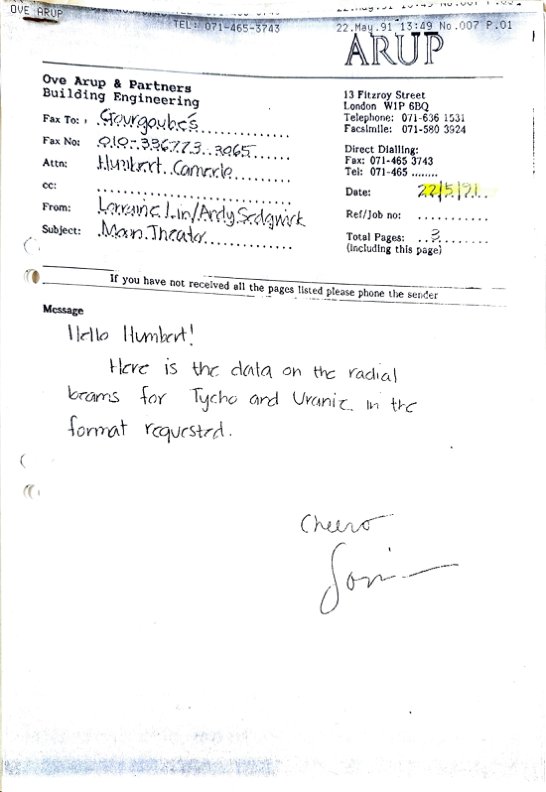 OVE ARUP
TEL: 071-465-3743
22.May.91 13:49 No.007 P.01
ARUP
Ove Arup & Partners
Building Engineering
Fax To: Gourgoubès
Fax No:
Attn: Humbert Camerlo
cc:
From: Lorraine Lin/Andy Sedgwick
Subject: Moon Theater
13 Fitzroy Street
London W1P 6BQ
Telephone: 071-636 1531
Facsimile: 071-580 3924
Direct Dialling:
Fax: 071-465 3743
Tel: 071-465 ........
Date: 22/5/91
Ref/Job no: ..........
Total Pages: 3
(including this page)
If you have not received all the pages listed please phone the sender
Message
Hello Humbert!
Here is the data on the radial
beams for Tycho and Uranie in the
format requested.
Cheerio